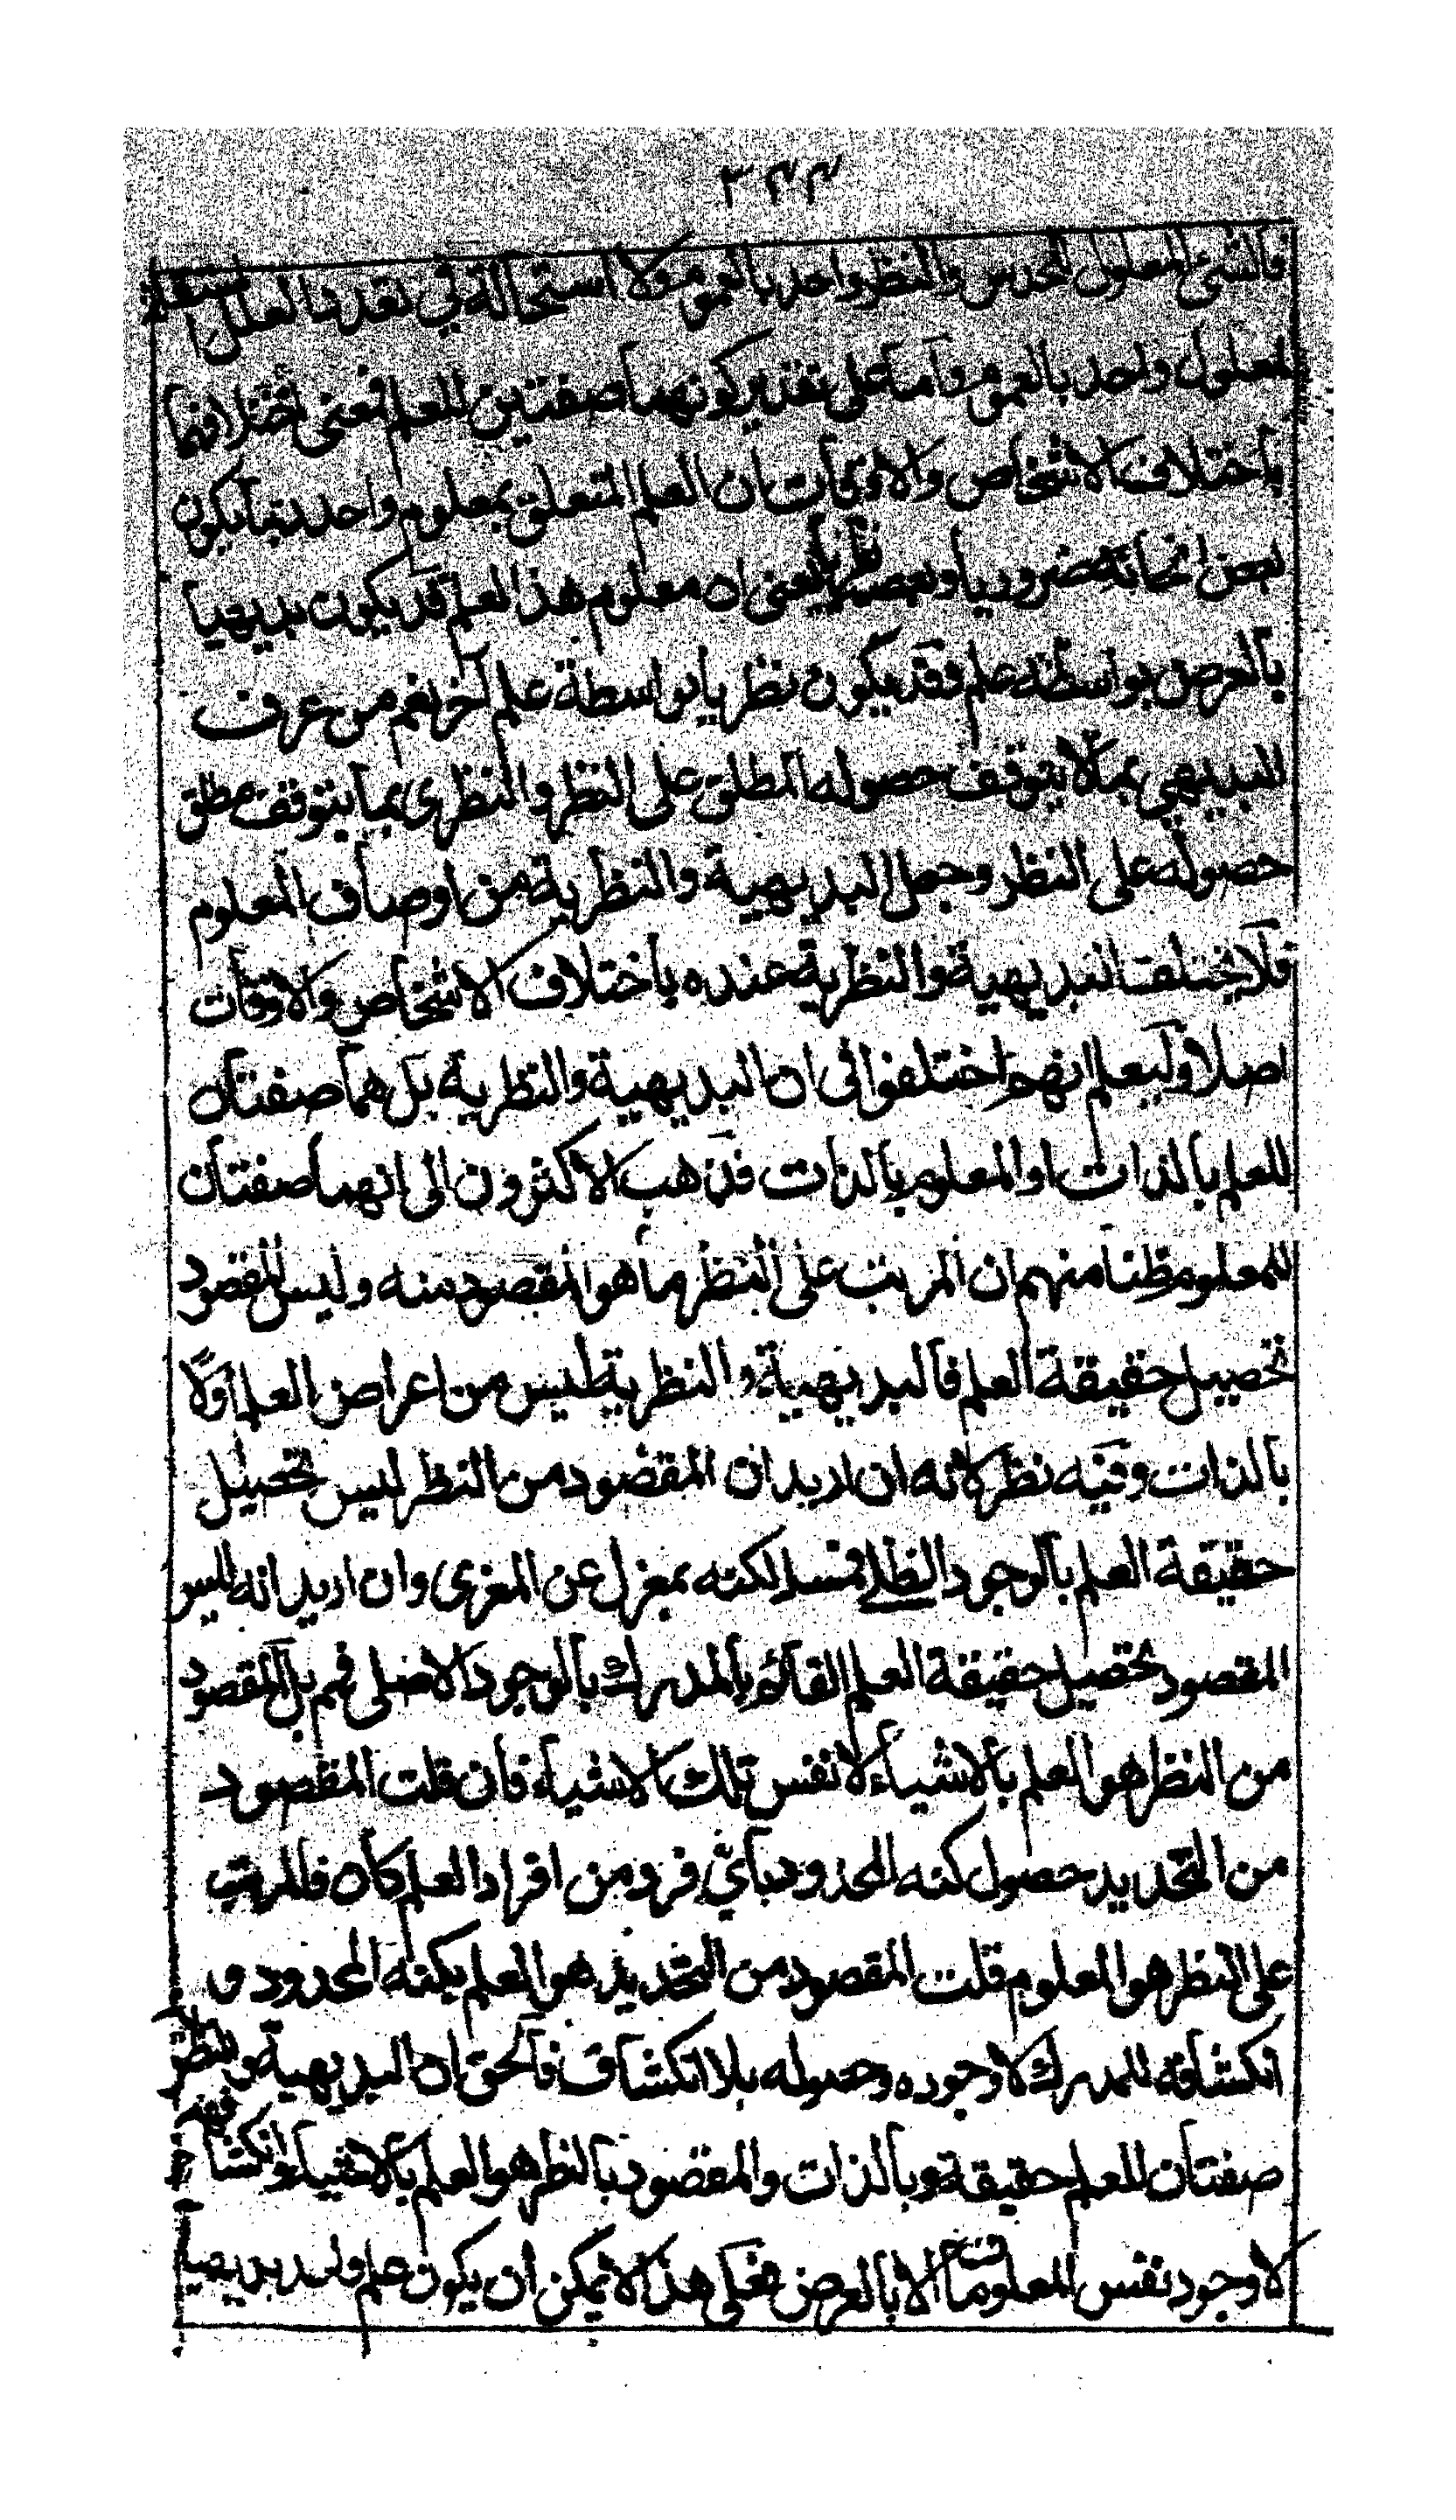 ٣٣٣
فالشئ المعلول للحدس والنظر واحد بالعموم ولا استحالة في تعدد العلل المستقلة
لمعلول واحد بالعموم واما على تقدير كونهما صفتين للعلم فمعنى اختلافهما
باختلاف الاشخاص والاوقات ان العلم المتعلق بمعلوم واحد ربما يكون
بعض انحائه ضروريا وبعضه نظريا بمعنى ان معلوم هذا العلم قد يكون بديهيا
بالعرض بواسطة علم فقد يكون نظريا بواسطة علم آخر نعم من عرف
البديهي بما لا يتوقف حصوله المطلق على النظر والنظرى بما يتوقف مطلق
حصوله على النظر وجعل البديهية والنظرية من اوصاف المعلوم
فلا يختلف البديهية والنظرية عنده باختلاف الاشخاص والاوقات
اصلا وليعلم انهم اختلفوا فى ان البديهية والنظرية بل هما صفتان
للعلم بالذات او المعلوم بالذات فذهب الاكثرون الى انهما صفتان
للمعلوم ظنا منهم ان المرتب على النظر ما هو المقصود منه وليس المقصود
تحصيل حقيقة العلم فالبديهية والنظرية ليس من اعراض العلم اولا
بالذات وفيه نظر لانه ان اريد ان المقصود من النظر ليس تحصيل
حقيقة العلم بالوجود الظلى فمسلم لكنه بمعزل عن المغزى وان اريد انه ليس
المقصود تحصيل حقيقة العلم القائم بالمدرك بالوجود الاصلى فمم بل المقصود
من النظر هو العلم بالاشياء لا نفس تلك الاشياء فان قلت المقصود
من التحديد حصول كنه المحدود باىّ فرد من افراد العلم كان فالمرتب
على النظر هو المعلوم قلت المقصود من التحديد هو العلم بكنه المحدود و
انكشافه للمدرك لا وجوده وحصوله بلا انكشاف فالحق ان البديهية والنظرية
صفتان للعلم حقيقة وبالذات والمقصود بالنظر هو العلم بالاشياء وانكشافها
لا وجود نفس المعلومات الا بالعرض فعلى هذا لا يمكن ان يكون علم واحد بديهيا